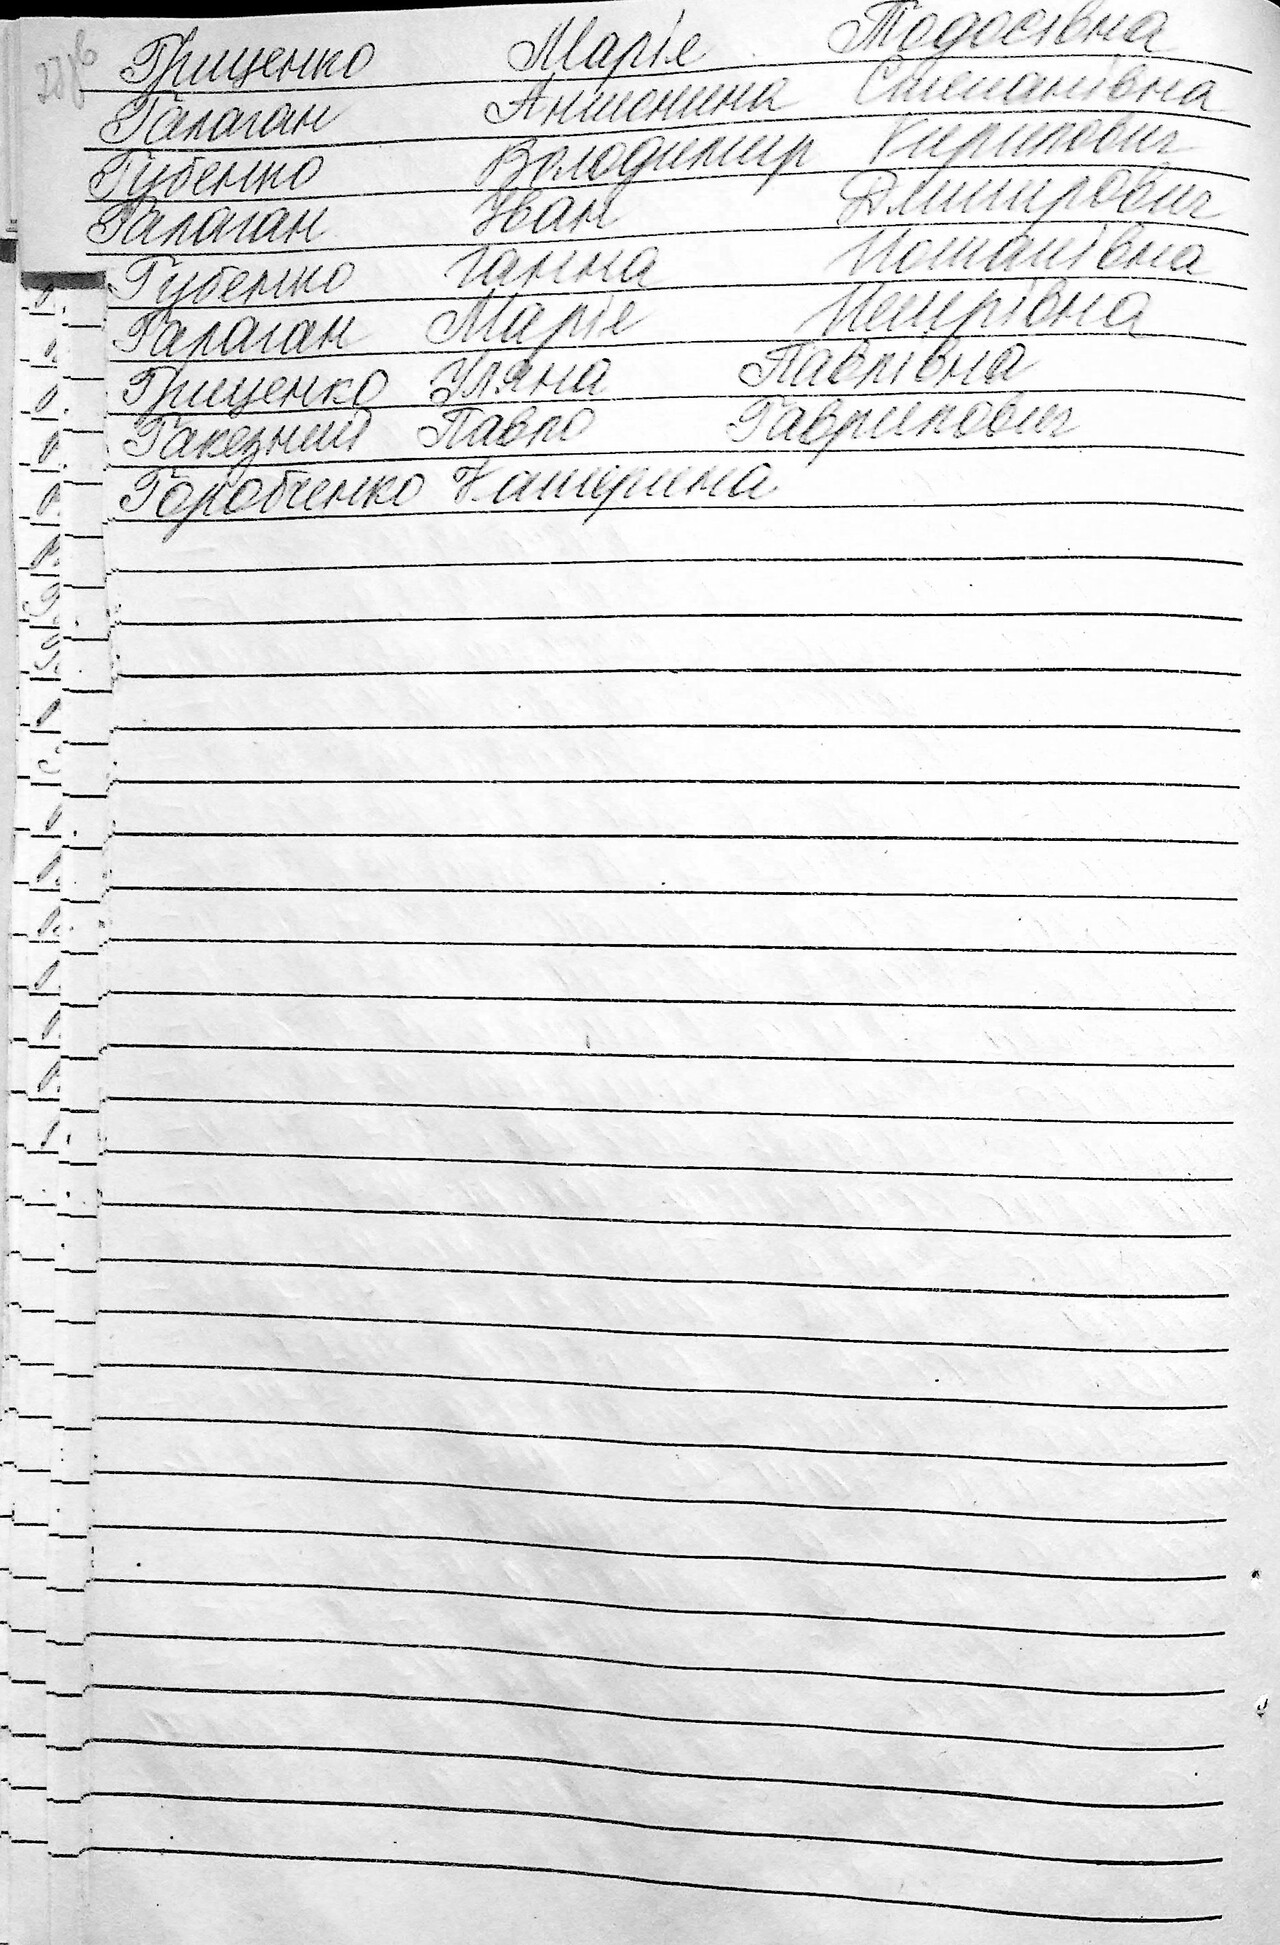 Грищенко Марія Тодосівна
Галаган Антонина Степанівна
Губенко Володимир Кирилович
Галаган Іван Дмитрович
Губенко Ганна Потапівна
Галаган Марія Петрівна
Грищенко Уляна Павлівна
Галезний Павло Гаврилович
Горобченко Катерина